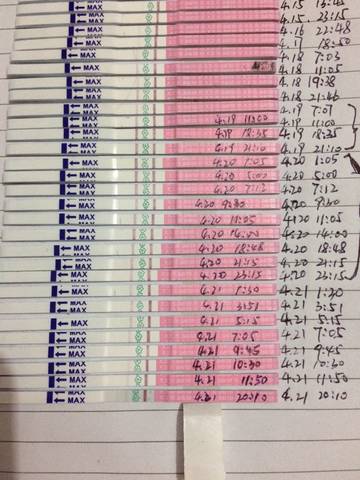 MAX 4.15 13:45
MAX 4.15 23:15
MAX 4.16 22:48
MAX 4.17 18:50
MAX 4.18 7:03
MAX 4.18 11:05
MAX 4.18 19:38
MAX 4.18 21:46
MAX 4.19 7:01
MAX 4.19 11:00 4.19 11:00
MAX 4.19 18:35 4.19 18:35
MAX 4.19 21:10 4.19 21:10
MAX 4.20 1:05 4.20 1:05
MAX 4.20 5:00 4.20 5:08
MAX 4.20 7:12 4.20 7:12
MAX 4.20 9:30 4.20 9:30
MAX 4.20 11:05 4.20 11:05
MAX 4.20 14:00 4.20 14:00
MAX 4.20 18:48 4.20 18:48
MAX 4.20 21:15 4.20 21:15
MAX 4.20 23:15 4.20 23:15
MAX 4.21 1:30 4.21 1:20
MAX 4.21 3:51 4.21 3:51
MAX 4.21 5:15 4.21 5:15
MAX 4.21 7:05 4.21 7:05
MAX 4.21 9:45 4.21 9:45
MAX 4.21 10:30 4.21 10:30
MAX 4.21 11:50 4.21 11:50
MAX 4.21 20:10 4.21 20:10